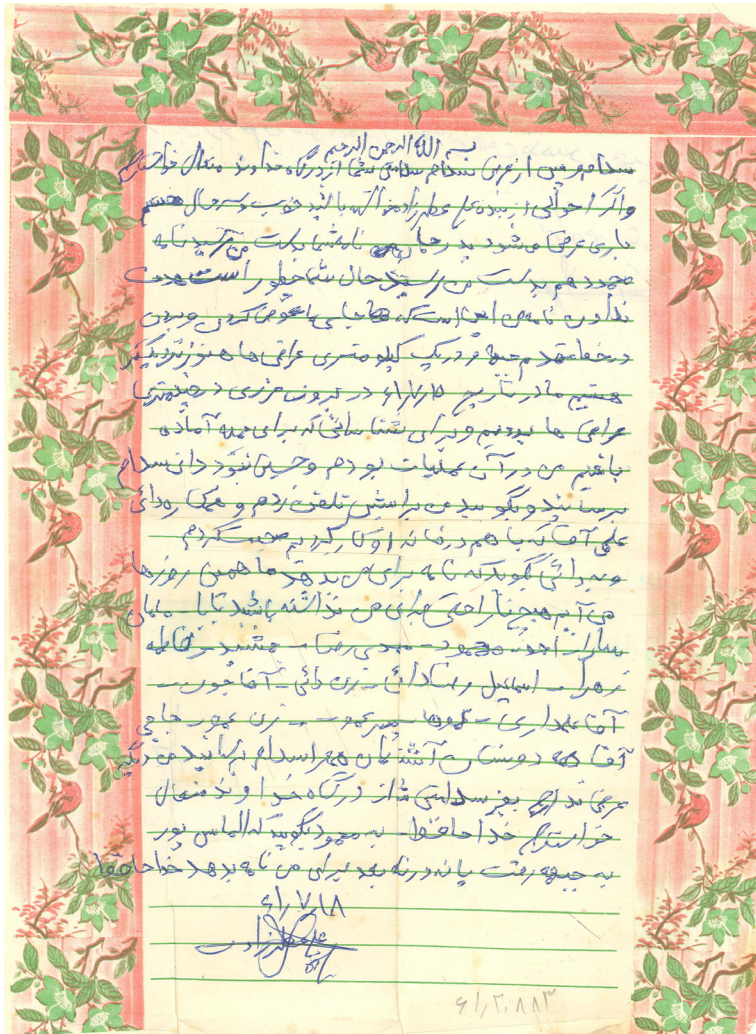 بسم الله الرحمن الرحیم
سلام پس از عرض سلام سلامتی شما از درگاه خداوند متعال خواستارم
واگر احوالی از بنده علی عطارزاده خواسته باشید خوب وسرحال هستم
باری عرض می شود پدر جان نامه شما بدست من رسید نامه
محمود هم بدست من رسید حال شما چطور است هدف
از دادن نامه من این است که جایی ما عوض کردن و بردن
در خط مقدم جبهه در یک کیلومتری عراقی ها هنوز نزدیکتر
هستیم ما در تاریخ ۶۱/۷/۱۵ در بیرون مرزی در چند متری
عراقی ها بودیم و برای شناسائی که برای حمله آماده
باشیم من در آن عملیات بودم و حسین دائی سلام
برسانید و بگویید من برایش تلفن زدم و همکاره دائی
علی آقا که با هم در خانه او کار کردیم صحبت کردم
و به دائی گویید که نامه برای من بدهد ما همین روزها
می آیم هیچ ناراحتی برای من نداشته باشید بابا - مامان
سارا - احد - محمود - مهدی رضا - - فاطمه
زهرا - اسماعیل رضا دائی - زن دائی - آقاجون -
آقا علمداری - عموها - پسر عمو - زن عمو حاجی
آقا همه دوستان آشنایان همه را سلام برسانید من دیگر
عرضی ندارم بغیر سلامتی شما از درگاه خداوند متعال
خواستارم خداحافظ - به محمود بگویید که الماس پور
به جبهه رفت یا نه در نامه بعد برای من نامه بدهد خداحافظ
۶۱/۷/۱۸
۶۱,۲,۸۸۳